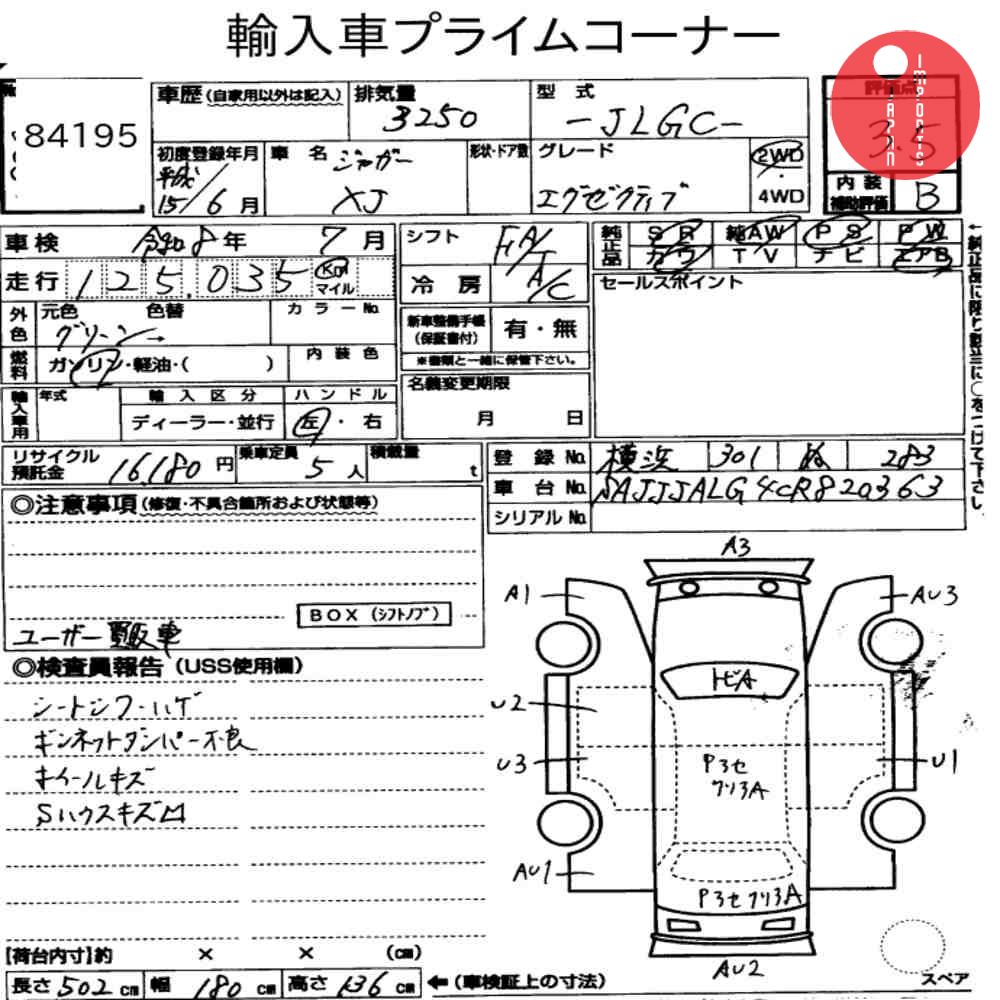 輸入車プライムコーナー
84195
車歴 (自家用以外は記入) 排気量 3250 型式 -JLGC- 評価点 3.5
IMPORTS JAPAN
初度登録年月 平成15/6月 車名 ジャガー XJ 形状・ドア数 グレード エグゼクティブ 2WD 4WD 内装補助評価 B
車検 令和8年 7月 シフト FA/T 純正品 SR 純AW PS PW
カワ TV ナビ エアB
走行 125,035 Km マイル 冷房 A/C セールスポイント
外色 元色 グリーン→ 色替 カラーNo. 新車整備手帳 (保証書付) 有・無
※書類と一緒に保管下さい。
燃料 ガソリン・軽油・( ) 内装色 名義変更期限 月 日
輸入車用 年式 輸入区分 ハンドル
ディーラー・並行 左・右
リサイクル預託金 16,180円 乗車定員 5人 積載量 t
登録No. 横浜 301 ぬ 283
車台No. SAJJJALG4CR820363
シリアルNo.
◎注意事項 (修復・不具合箇所および状態等)
BOX (シフトノブ)
ユーザー買取車
◎検査員報告 (USS使用欄)
シートシワ・ハゲ
ボンネットダンパー不良
ホイールキズ
Sハウスキズ凹
A3
A1 AU3
トビA
U2
U3 P3セ クリ3A U1
AU1
P3セクリ3A
AU2
スペア
[荷台内寸]約 × × (cm)
長さ 502 cm 幅 180 cm 高さ 136 cm ←(車検証上の寸法)